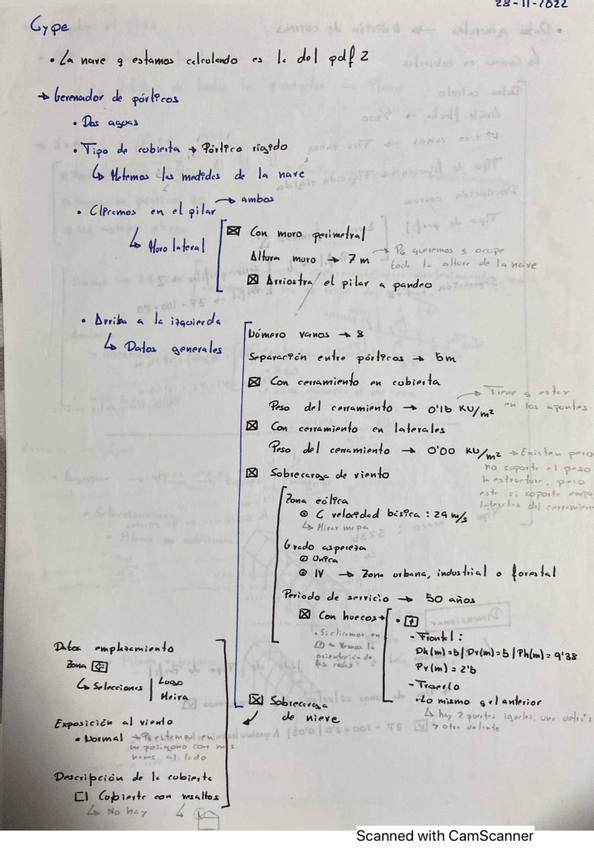 28-11-2022
Cype
• La nave q estamos calculando es la del pdf 2
→ Gerenador de pórticos
• Dos aguas
• Tipo de cubierta → Pórtico rígido
↳ Metemos las medidas de la nave
• Clicamos en el pilar → ambos
↳ Muro lateral
☒ Con muro perimetral
Altura muro → 7 m → Pq queremos q ocupe toda la altura de la nave
☒ Arriostra el pilar a pandeo
• Arriba a la izquierda
↳ Datos generales
Número vanos → 8
Separación entre pórticos → 5m
☒ Con cerramiento en cubierta
Peso del cerramiento → 0'15 KN/m² → Tiene q estar en los apuntes
☒ Con cerramiento en laterales
Peso del cerramiento → 0'00 KN/m² → Existen pero
no soporta el peso
la estructura, pero
este si soporta
del cerramiento
☒ Sobrecarga de viento
Zona eólica
⦿ C velocidad básica : 29 m/s
↳ Mirar mapa
Grado aspereza
⦿ Única
⦿ IV → Zona urbana, industrial o forestal
Periodo de servicio → 50 años
☒ Con huecos →
• Si clicamos en
→ Vemos la
orientación de
• +
- Frontal :
Dh(m)=5 | Dv(m)=5 | Ph(m) = 9'38
Pv(m) = 2'5
- Trasero
• Lo mismo q el anterior
↳ hay 2 puertas iguales, una
otra delante
☒ Sobrecarga
de nieve
Datos emplazamiento
Zona
↳ Selecciones | Lugo
Meira
Exposición al viento
• Normal → Pq estamos en
un polígono con más
naves al lado
Descripción de la cubierta
☐ Cubierta con resaltos
↳ No hay
Scanned with CamScanner